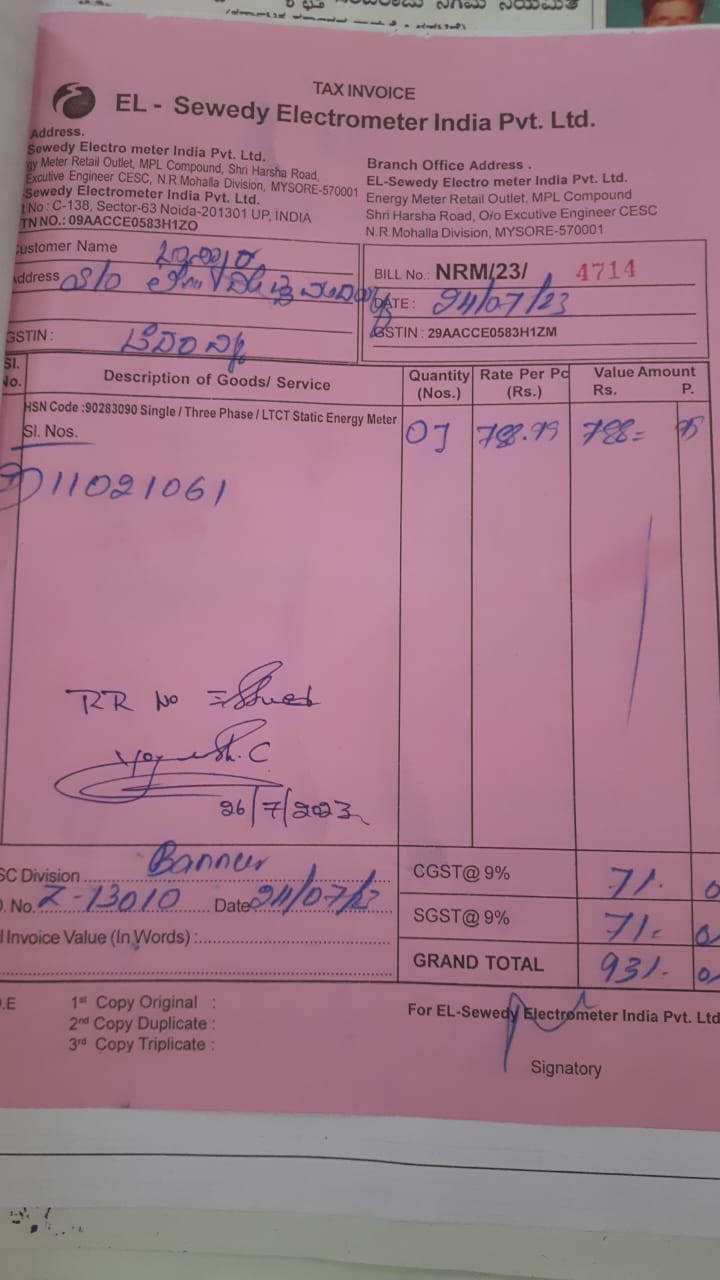 TAX INVOICE
EL - Sewedy Electrometer India Pvt. Ltd.
Address.
Sewedy Electro meter India Pvt. Ltd.
gy Meter Retail Outlet, MPL Compound, Shri Harsha Road,
Excutive Engineer CESC, N.R.Mohalla Division, MYSORE-570001
Sewedy Electrometer India Pvt. Ltd.
No : C-138, Sector-63 Noida-201301 UP, INDIA
TN NO.: 09AACCE0583H1ZO
Branch Office Address .
EL-Sewedy Electro meter India Pvt. Ltd.
Energy Meter Retail Outlet, MPL Compound
Shri Harsha Road, O/o Excutive Engineer CESC
N.R.Mohalla Division, MYSORE-570001
ustomer Name
ddress S/o
GSTIN :
BILL No.: NRM/23/ 4714
DATE : 24/07/23
GSTIN : 29AACCE0583H1ZM
Sl. No. Description of Goods/ Service Quantity (Nos.) Rate Per Pc (Rs.) Value Amount Rs. P.
HSN Code :90283090 Single / Three Phase / LTCT Static Energy Meter
Sl. Nos. 01
11021061
RR No Issued
26/7/2023
SC Division Bannur
No. Z-13010 Date 24/07/23
l Invoice Value (In Words) :
CGST@ 9% 71.
SGST@ 9% 71.
GRAND TOTAL 931.
.E 1st Copy Original :
2nd Copy Duplicate :
3rd Copy Triplicate :
For EL-Sewedy Electrometer India Pvt. Ltd
Signatory